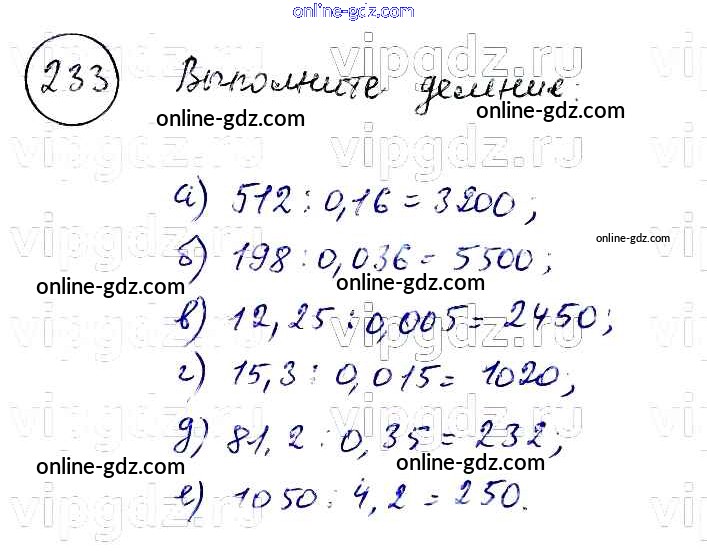 online-gdz.com
vipgdz.ru vipgdz.ru
233 Выполните деление:
online-gdz.com online-gdz.com
vipgdz.ru vipgdz.ru
а) 512 : 0,16 = 3200;
vipgdz.ru vipgdz.ru
online-gdz.com
б) 198 : 0,036 = 5500;
online-gdz.com online-gdz.com
в) 12,25 : 0,005 = 2450;
vipgdz.ru vipgdz.ru
г) 15,3 : 0,015 = 1020;
vipgdz.ru vipgdz.ru
д) 81,2 : 0,35 = 232;
online-gdz.com online-gdz.com
е) 1050 : 4,2 = 250.
vipgdz.ru vipgdz.ru